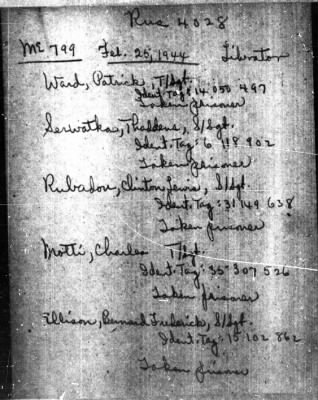 Rue 4028
ME 799 Feb. 25, 1944 Liberator
Ward, Patrick, T/Sgt.
Ident. Tag: 14 050 497
Taken prisoner
Serwatka, Thaddeus, S/Sgt.
Ident. Tag: 6 118 902
Taken prisoner
Rubadou, Clinton Lewis, S/Sgt.
Ident. Tag: 31 149 638
Taken prisoner
Motti, Charles T/Sgt.
Ident. Tag: 35 307 526
Taken prisoner
Ellison, Bernard Frederick, S/Sgt.
Ident. Tag: 15 102 862
Taken prisoner